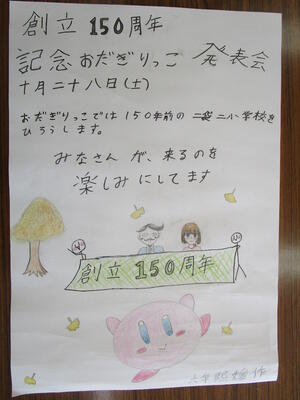 創立150周年
記念おだぎりっこ発表会
十月二十八日(土)
おだぎりっこでは150年前の二小学校を
ひろうします。
みなさんが、来るのを
楽しみにしてます
創立150周年
六年 作